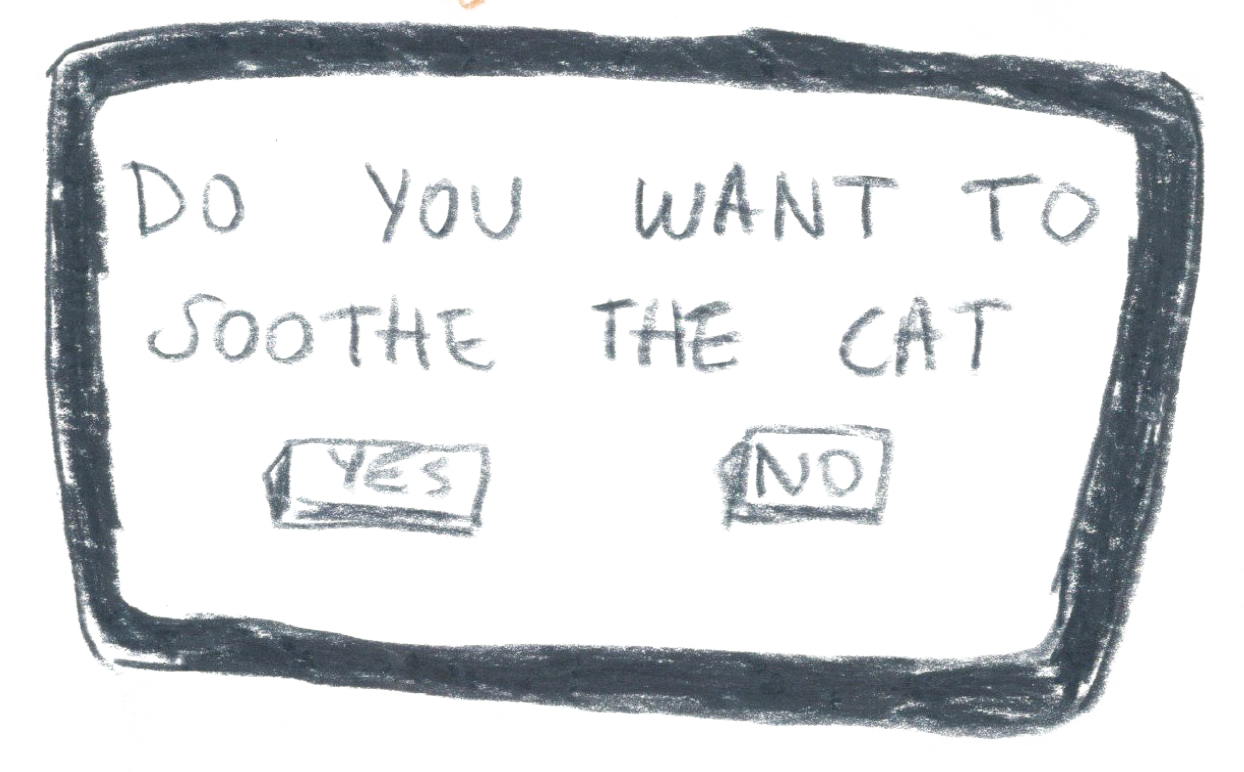 DO YOU WANT TO
SOOTHE THE CAT
YES NO